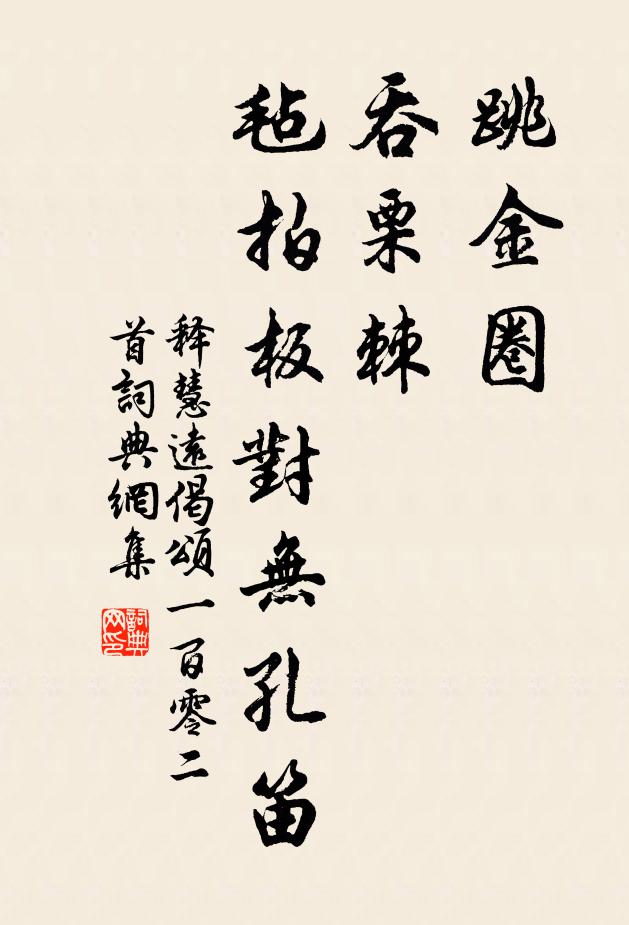 跳金圈
吞栗棘
毡拍板對無孔笛
释慧遠偈頌一百零二
首詞典網集
詞典网印